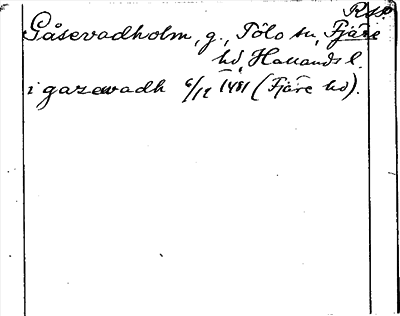 Rsp
Gåsevadholm, g., Tölo sn, Fjäre
hd, Hallands l.
i gazewadh 6/12 1481 (Fjäre hd).